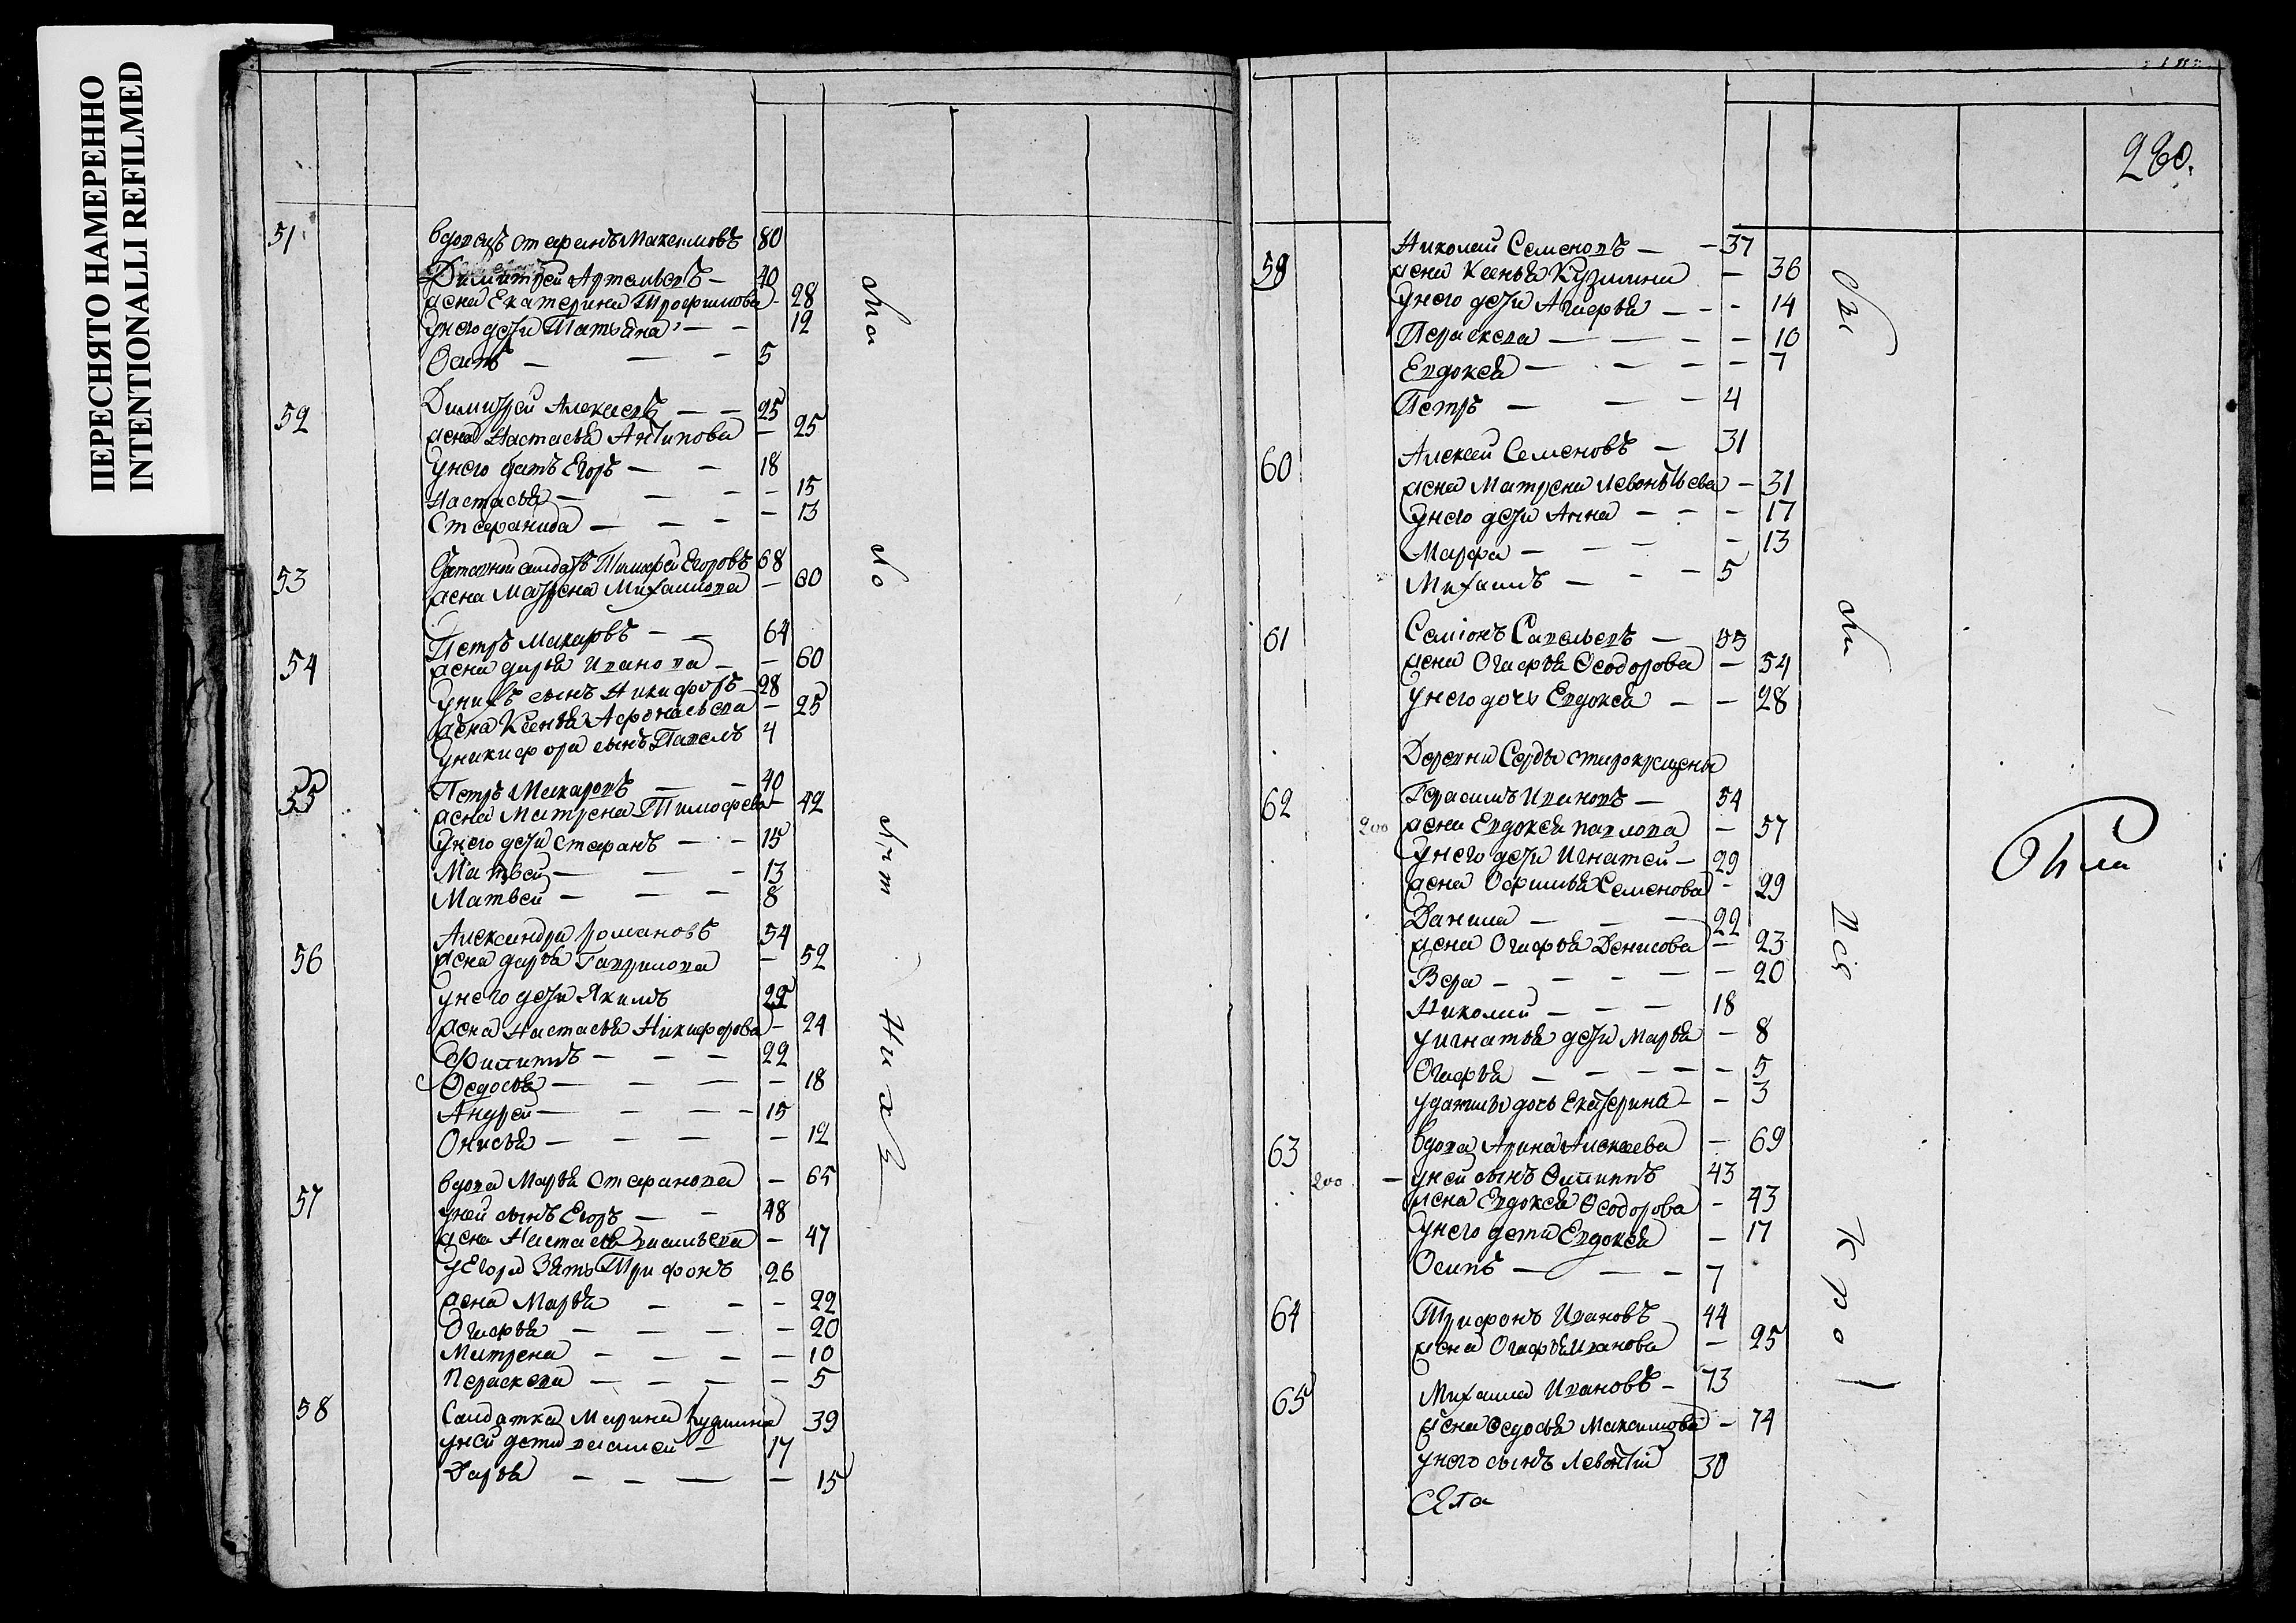 ПЕРЕСНЯТО НАМЕРЕННО
INTENTIONALLI REFILMED
51 вдовецъ Стефанъ Максимовъ 80
Димитрей Артемьевъ — 40
жена Екатерина Трофимова — 28
у него дети Татьяна — — 12
Осипъ — — — 5
52 Димитрей Алексеевъ — — 25
жена Настасья Антипова — 25
у него братъ Егоръ — — 18
Настасья — — — — 15
Стефанида — — — — 13
53 Отставной салдатъ Тимофей Егоровъ 68
жена Матрена Михайлова — 60
54 Петръ Макаровъ — — 64
жена дарья Иванова — — 60
у нихъ сынъ Никифоръ 28
жена Ксенья Афонасьева — 25
у никифора сынъ Павелъ 4
55 Петръ Макаровъ — — 40
жена Матрена Тимофеева — 42
у него дети стефанъ — — 15
Матвей — — — 13
Матвей — — — 8
56 Александра романовъ 54
жена дарья Гаврилова — 52
у него дети Якимъ 25
жена Настасья Никифорова — 24
Филиппъ — — — 22
Ѳедосья — — — — 18
Андрей — — — — 15
Онисья — — — — 12
57 вдова Марья Стефанова — 65
у ней сынъ Егоръ — — 48
жена Настасья васильева — 47
у Егора Зять Трифонъ 26
жена Марья — — — 22
Огафья — — — — 20
Матрена — — — — 10
Пераскева — — — — 5
58 Салдатка Марина Кузмина 39
у ней дети василей — 17
Дарья — — — — 15
280.
59 Николай Семеновъ — — 37
жена Ксенья Кузмина — 36
у него дети Агафья — — — 14
Пераскева — — — — 10
Евдокея — — — — 7
Петръ — — — 4
60 Алексей Семеновъ — 31
жена Матрена Левонтьева — 31
у него дети Анна — — — 17
Марфа — — — — 13
Михаилъ — — — 5
61 Семіонъ Савельевъ — 55
жена Огафья Ѳеодорова — 54
у него дочь Евдокея — — 28
Деревни Серды старокрещены
62 Герасимъ Ивановъ — 54
200 жена Евдокея павлова — 57
у него дети Игнатей — 29
жена Офимья Семенова — 29
Данила — — — 22
жена Огафья Денисова — 23
Вера — — — — — 20
Николай — — — 18
у игнатья дети Марья — 8
Огафья — — — — — 5
у данилы дочь Екатерина — — 3
63 вдова Арина Алексеева — 69
200 — у ней сынъ Филиппъ 43
жена Евдокея Ѳеодорова — 43
у него дети Евдокея — 17
Осипъ — — — 7
64 Трифонъ Ивановъ 44
жена Огафья Иванова — 25
65 Михаила Ивановъ — 73
жена Ѳедосья Максимова — 74
у него сынъ Левонтій 30